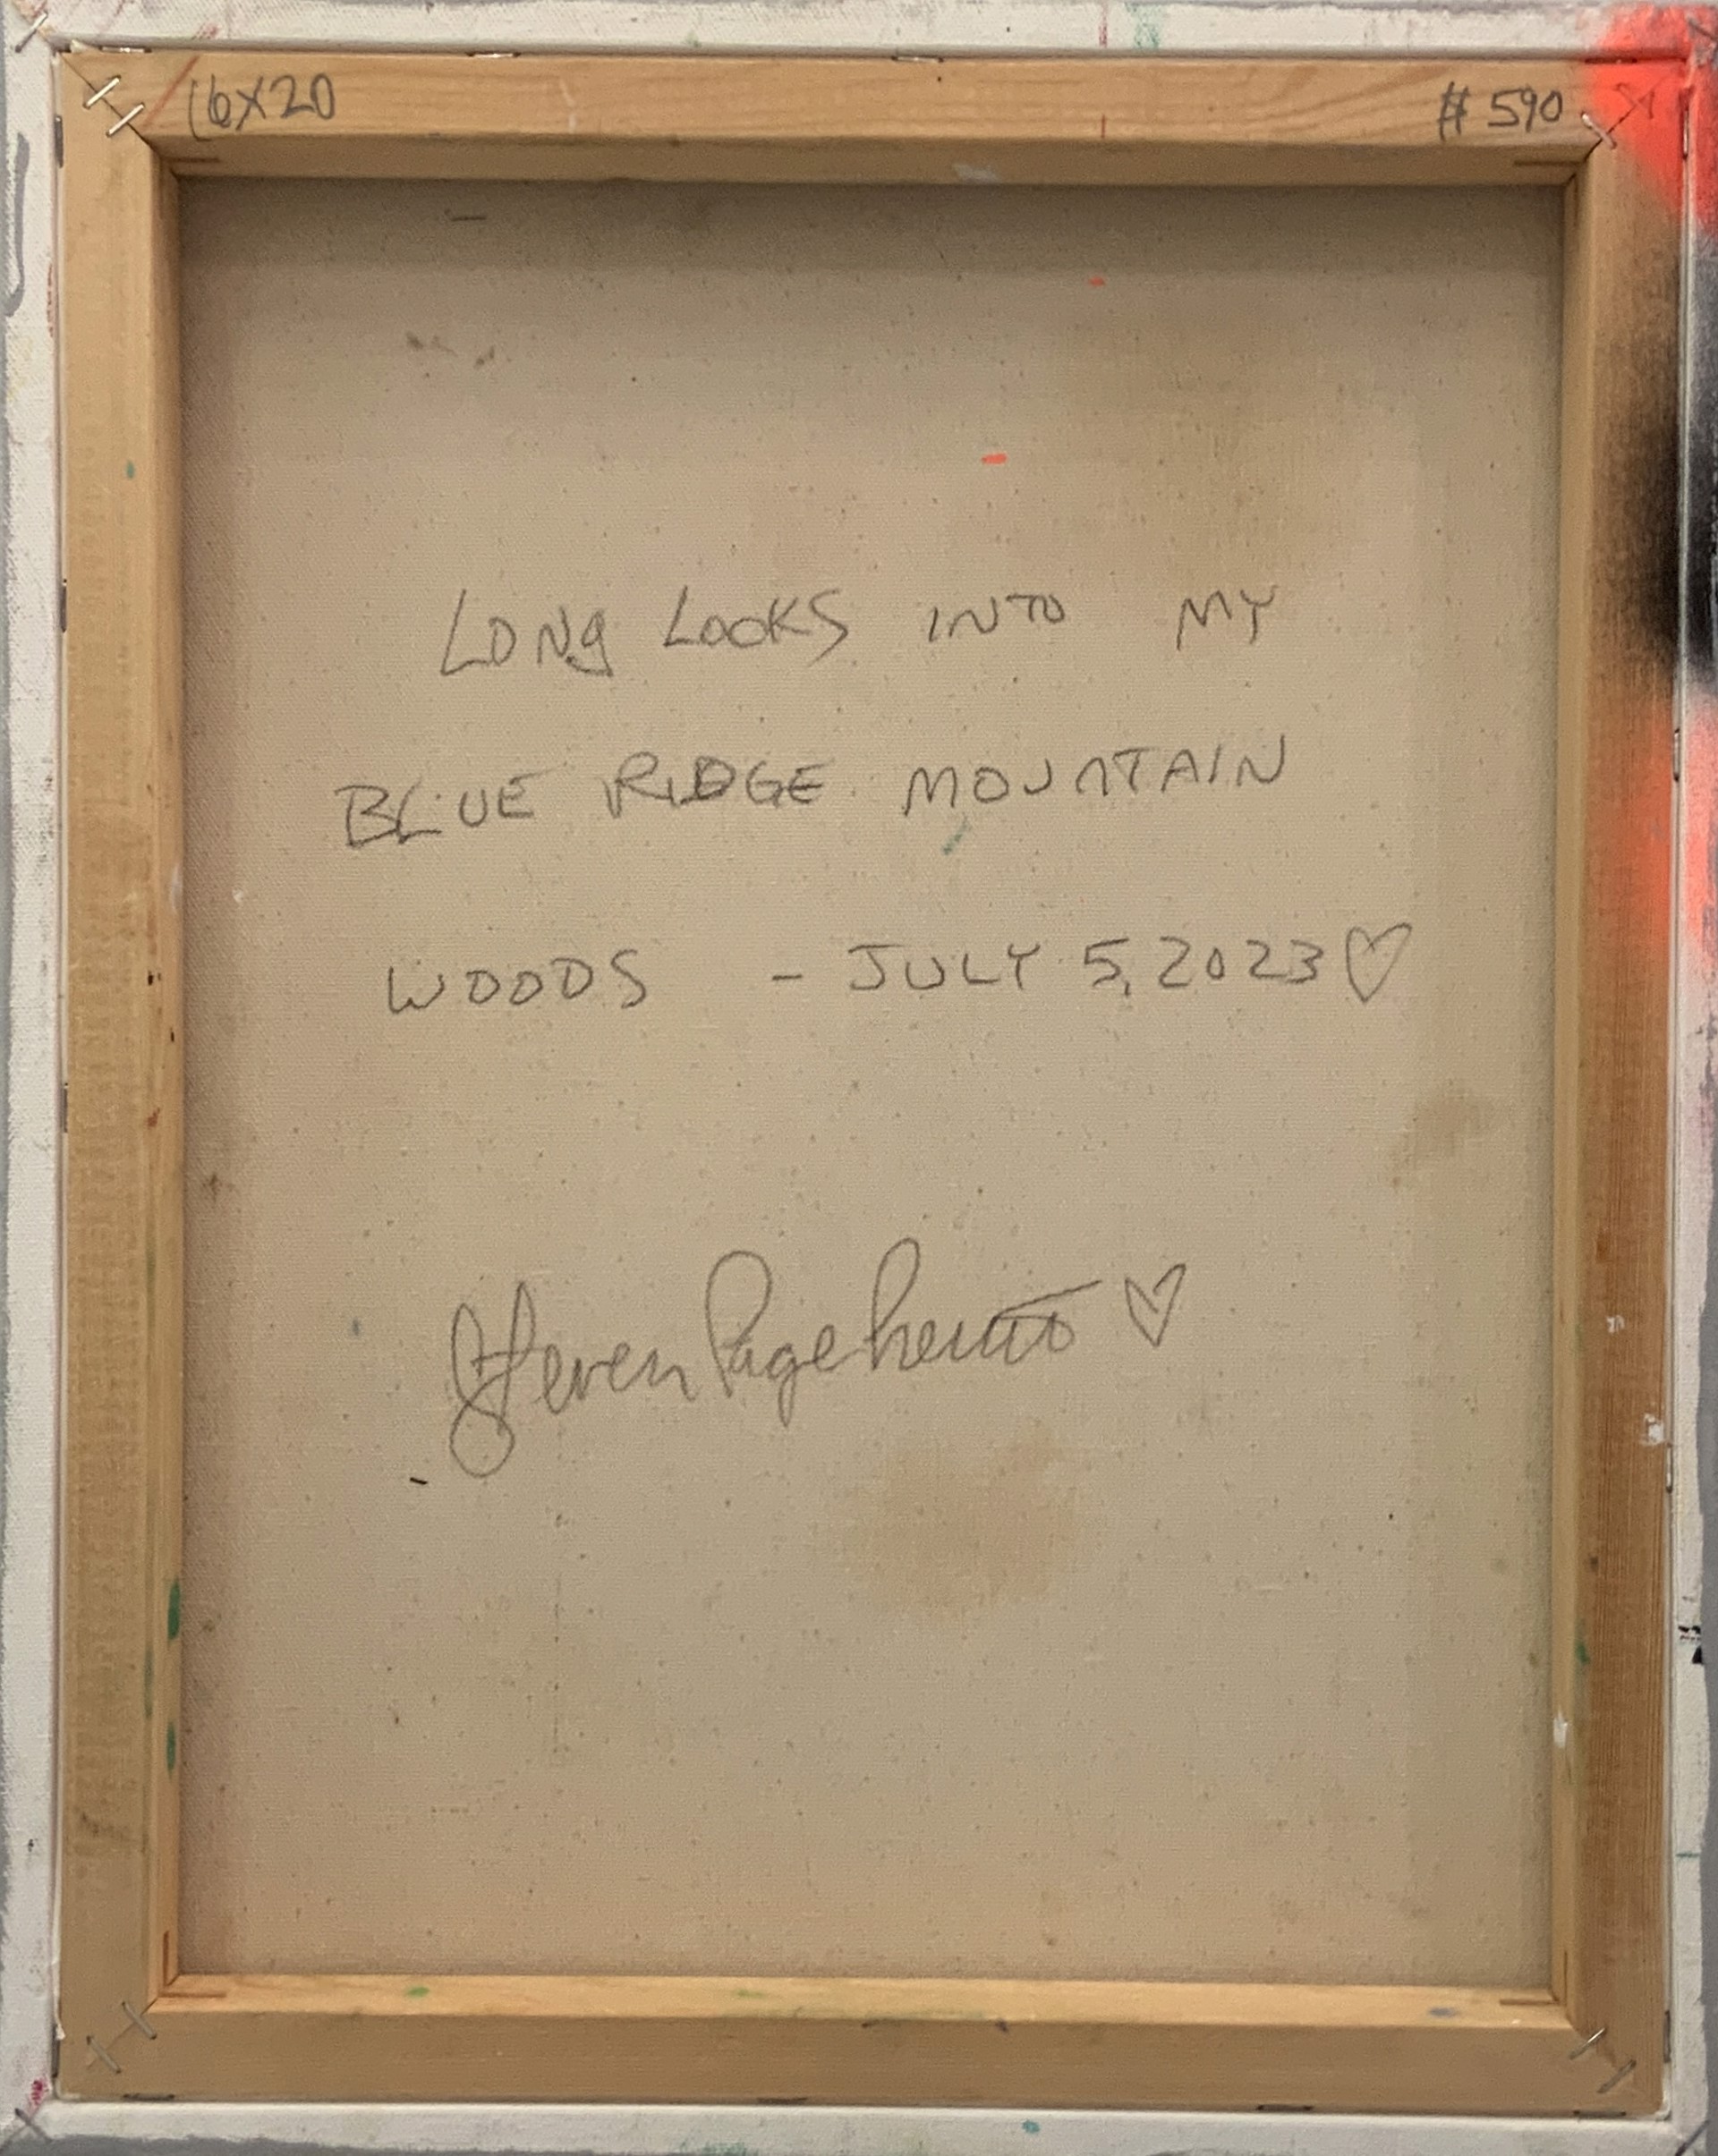 16X20
# 590
LONG LOOKS INTO MY
BLUE RIDGE MOUNTAIN
WOODS - JULY 5, 2023 ♡
Steven Page Prewitt ♡